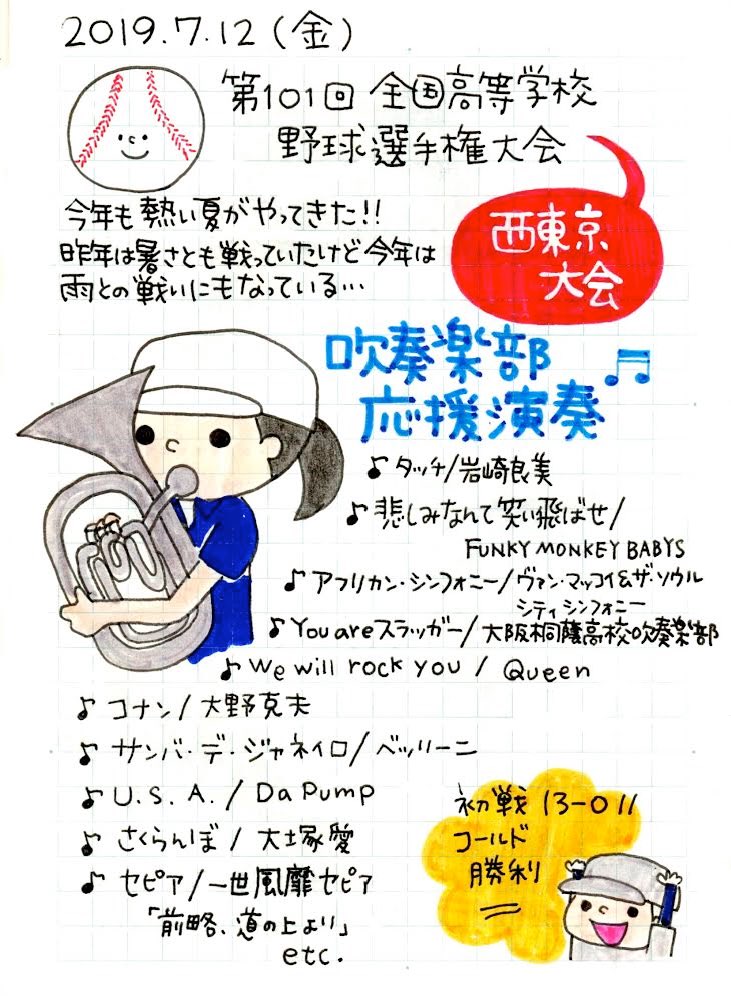 2019.7.12(金)
第101回 全国高等学校
野球選手権大会
西東京
大会
今年も熱い夏がやってきた!!
昨年は暑さとも戦っていたけど今年は
雨との戦いにもなっている…
吹奏楽部
応援演奏
♪ タッチ/岩崎良美
♪ 悲しみなんて笑い飛ばせ/
FUNKY MONKEY BABYS
♪ アフリカン・シンフォニー/ヴァン・マッコイ&ザ・ソウル
シティシンフォニー
♪ You are スラッガー/大阪桐蔭高校吹奏楽部
♪ We will rock you / Queen
♪ コナン/大野克夫
♪ サンバ・デ・ジャネイロ/ベッリーニ
♪ U.S.A./Da Pump
♪ さくらんぼ/大塚愛
♪ セピア/一世風靡セピア
「前略、道の上より」
etc.
初戦 13-0!!
コールド
勝利